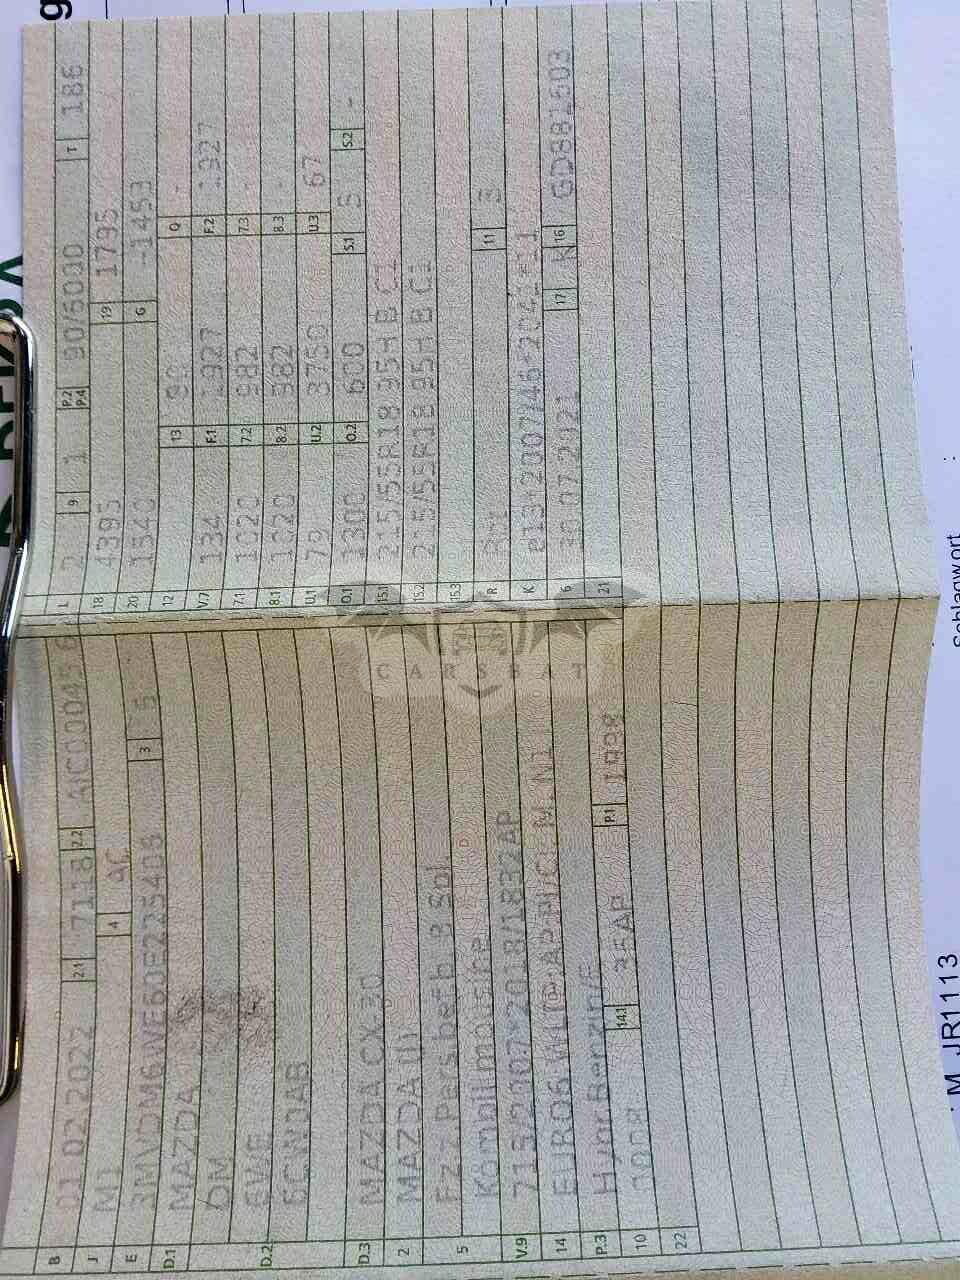 B 01.02.2022 2.1 7118 2.2 AIC000456 6
J M1 4 AC
E 3MVDM6WE60E225408 3 5
D.1 MAZDA
D.2 DM
6WE
6CWDAB
D.3 MAZDA CX-30
2 MAZDA (J)
5 Fz.z.Pers.bef.b. 8 Spl.
Kombilimousine
V.9 715/2007*2018/1832AP
14 EURO6 WLTP;AP;PI/CI;M,N1
P.3 Hybr.Benzin/E P.1 1998
10 0008 14.1 36AP
22
L 2 9 1 P.2 P.4 90/6000 T 186
18 4395 19 1795
20 1540 6 -1453
12 13 80 Q -
V.7 134 F.1 1927 F.2 1927
7.1 1020 7.2 982 7.3 -
8.1 1020 8.2 982 8.3 -
U.1 70 U.2 3750 U.3 67
O.1 1300 O.2 600 S.1 5 S.2 -
15.1 215/55R18 95H B C1
15.2 215/55R18 95H B C1
15.3
R 11
K e13*2007/46*2041*11
6 30.07.2021 17 K 16 GD881603
21
CARSBAT
Schlagwort :
M JR1113